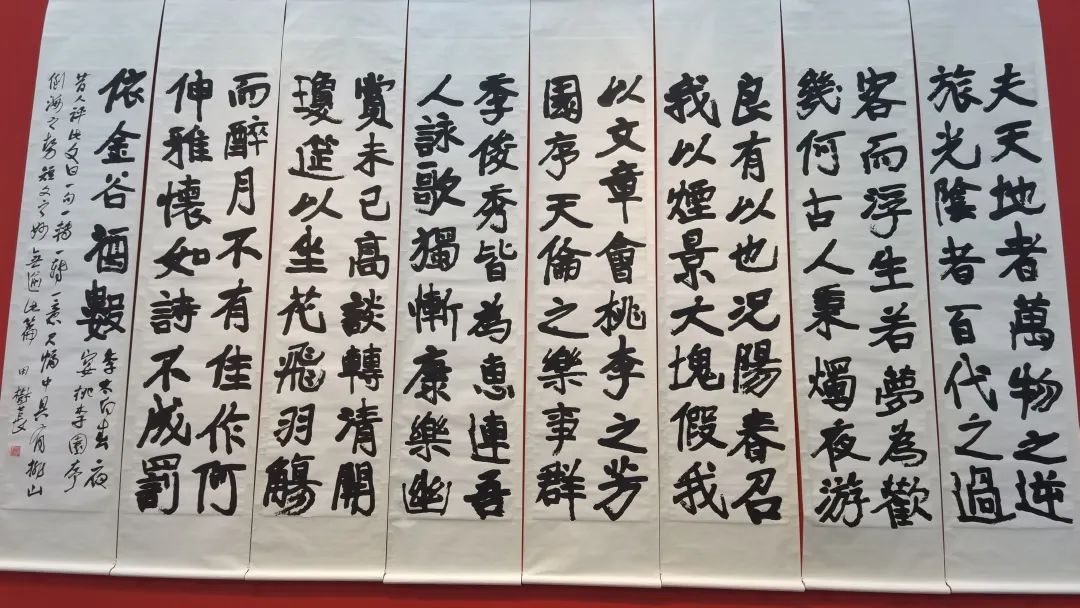 夫天地者萬物之逆
旅光陰者百代之過
客而浮生若夢為歡
幾何古人秉燭夜游
良有以也況陽春召
我以煙景大塊假我
以文章會桃李之芳
園序天倫之樂事群
季俊秀皆為惠連吾
人詠歌獨慚康樂幽
賞未已高談轉清開
瓊筵以坐花飛羽觴
而醉月不有佳作何
伸雅懷如詩不成罰
依金谷酒數
李太白春夜
宴桃李園序
昔人評此文曰一句一轉一轉一意尺幅中具有排山
倒海之勢短文之妙無逾此篇 田樹萇